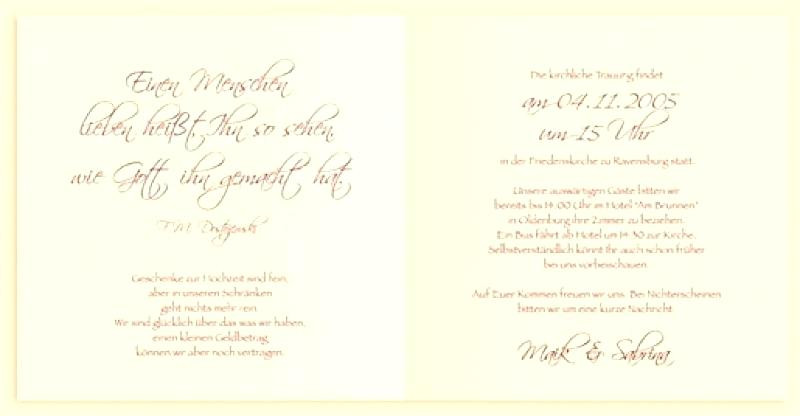 Einen Menschen
lieben heißt, Ihn so sehen,
wie Gott ihn gemacht hat.
F.M. Dostojewski
Geschenke zur Hochzeit sind fein,
aber in unseren Schränken
geht nichts mehr rein.
Wir sind glücklich über das was wir haben,
einen kleinen Geldbetrag
können wir aber noch vertragen.
Die kirchliche Trauung findet
am 04.11.2005
um 15 Uhr
in der Friedenskirche zu Ravensburg statt.
Unsere auswärtigen Gäste bitten wir
bereits bis 14:00 Uhr im Hotel "Am Brunnen"
in Oldenburg ihre Zimmer zu beziehen.
Ein Bus fährt ab Hotel um 14:30 zur Kirche.
Selbstverständlich könnt Ihr auch schon früher
bei uns vorbeischauen.
Auf Euer Kommen freuen wir uns. Bei Nichterscheinen
bitten wir um eine kurze Nachricht.
Maik & Sabrina